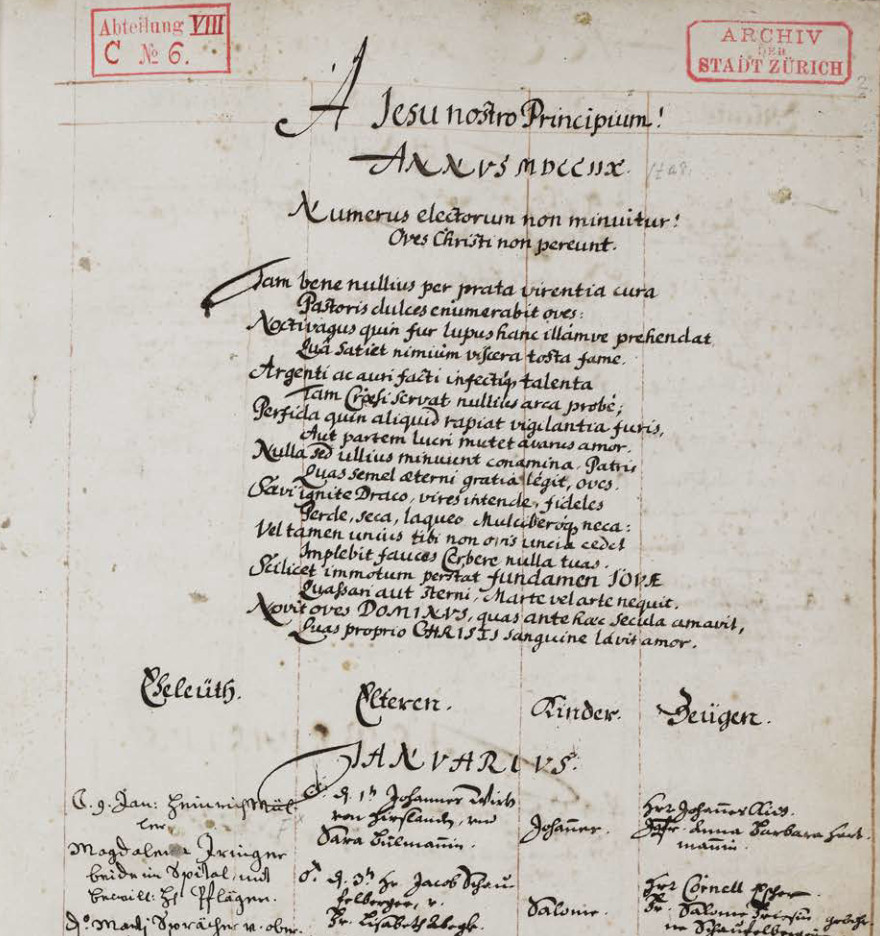 Abteilung VIII
C № 6.
ARCHIV
DER
STADT ZÜRICH
2
A Jesu nostro Principium!
ANNVS MDCCIIX.
Numerus electorum non minuitur!
Oves Christi non pereunt.
Tam bene nullius per prata virentia cura
Pastoris dulces enumerabit oves:
Noctivagus quin fur lupus hanc illámve prehendat
Quâ satiet nimiùm viscera tosta fame.
Argenti ac auri facti infectiq; talenta
Tam Crœsi servat nullius arca probè;
Perfida quin aliquid rapiat vigilantia furis,
Aut partem lucri mutet avarus amor.
Nulla sed ullius minuunt conamina Patris
Quas semel æterni gratia legit, oves.
Sævi ignite Draco, vires intende, fideles
Perde, seca, laqueo Mulciberoq; neca:
Vel tamen unius tibi non ovis uncia cedet
Implebit fauces Cerbere nulla tuas.
Scilicet immotum perstat fundamen IOVÆ
Quassari aut sterni, Marte vel arte nequit.
Novit oves DOMINVS, quas ante hac secula amavit,
Quas proprio CHRISTI sanguine lavit amor.
Eheleüth. Elteren. Kinder. Zeügen.
IANVARIVS.
9. Jan: Heinrich Mül-
ler
Magdalena Iringer
beide im Spital, und
d. 1ⁿ Johannes Wirth
von Hirslanden, und
Sara
Johannes.
Hrr Johannes
Anna Barbara Hart-
mannin.
Pflägern.
d. 3ⁿ Hr. Jacob Schau-
felberger, v.
Fr. Lisabeth
Salome.
Hrr Cornell Escher
Fr. Salome